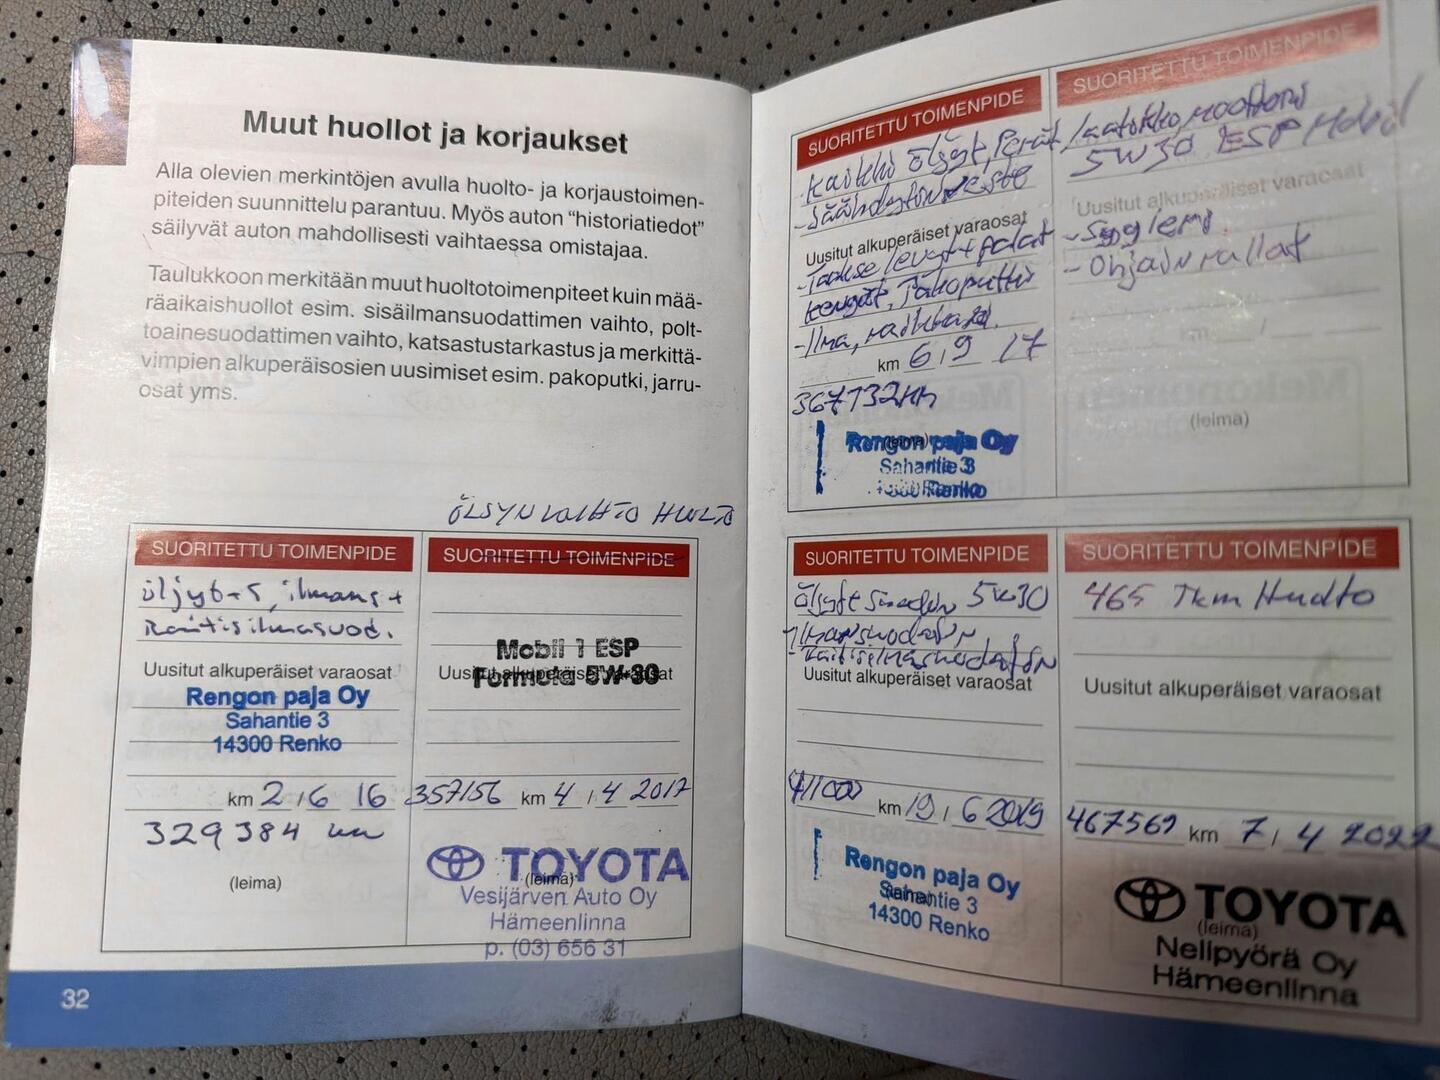 Muut huollot ja korjaukset
Alla olevien merkintöjen avulla huolto- ja korjaustoimen-
piteiden suunnittelu parantuu. Myös auton "historiatiedot"
säilyvät auton mahdollisesti vaihtaessa omistajaa.
Taulukkoon merkitään muut huoltotoimenpiteet kuin mää-
räaikaishuollot esim. sisäilmansuodattimen vaihto, polt-
toainesuodattimen vaihto, katsastustarkastus ja merkittä-
vimpien alkuperäisosien uusimiset esim. pakoputki, jarru-
osat yms.
SUORITETTU TOIMENPIDE
öljyt+s, ilmans+
Raitisilmasuod.
Uusitut alkuperäiset varaosat
Rengon paja Oy
Sahantie 3
14300 Renko
km 2,6 16
329384 km
(leima)
HUOLTO
SUORITETTU TOIMENPIDE
Mobil 1 ESP
Uusitut alkuperäiset varaosat
Formula 5W-30
357156 km 4,4 2017
TOYOTA
(leima)
Vesijärven Auto Oy
Hämeenlinna
p. (03) 656 31
32
SUORITETTU TOIMENPIDE
Kaikki öljyt, Perät, laatikko, moottori
Uusitut alkuperäiset varaosat
-Takse levyt+palat
kengät, Pakoputki
-Ilma, raitisilma.
km 6,9 17
367732km
(leima)
Rengon paja Oy
Sahantie 3
14300 Renko
SUORITETTU TOIMENPIDE
5W30 ESP Mobil
Uusitut alkuperäiset varaosat
-Ohjainrullat
km
(leima)
SUORITETTU TOIMENPIDE
Öljyt+Suodatin 5w30
-Ilmansuodatin
-Raitisilmasuodatin
Uusitut alkuperäiset varaosat
411000 km 19,6 2019
Rengon paja Oy
Sahantie 3
14300 Renko
SUORITETTU TOIMENPIDE
465 Tkm Huolto
Uusitut alkuperäiset varaosat
467569 km 7,4 2022
TOYOTA
(leima)
Nelipyörä Oy
Hämeenlinna